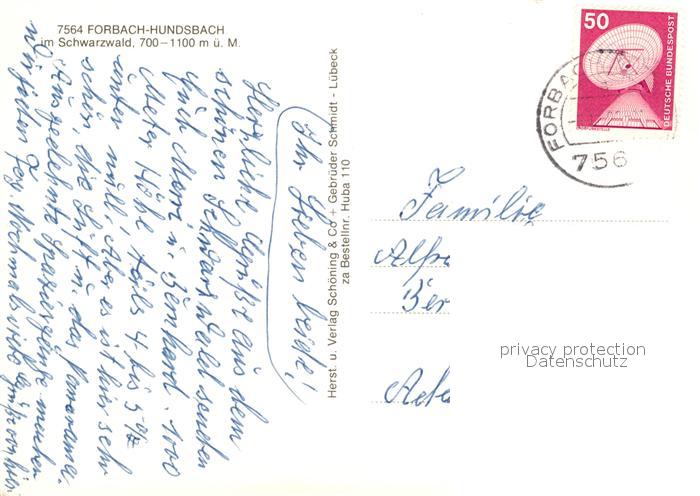 7564 FORBACH-HUNDSBACH
im Schwarzwald, 700–1100 m ü. M.
Ihr Lieben beide!
Herzliche Grüße aus dem
schönen Schwarzwald senden
Euch u. Bernhard. 1000
Meter Höhe teils 4 bis 5 %
unter null, Aber es ist hier sehr
schön, die Luft u. das Panorama.
Ausgedehnte Spaziergänge machen
wir jeden Tag. Nochmals viele Grüße
Herst. u. Verlag Schöning & Co + Gebrüder Schmidt - Lübeck
za Bestellnr. Huba 110
50
DEUTSCHE BUNDESPOST
FORBAC
756
Familie
Alfre
Ber
privacy protection
Datenschutz